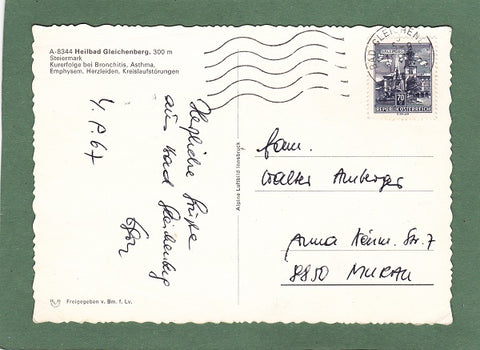 A-8344 Heilbad Gleichenberg, 300 m
Steiermark
Kurerfolge bei Bronchitis, Asthma,
Emphysem, Herzleiden, Kreislaufstörungen
4.8.67
Herzliche Grüße
aus Bad Gleichenberg
Alpine Luftbild Innsbruck
BAD GLEICHENBERG
70
REPUBLIK ÖSTERREICH
Fam.
Walter Amberger
Anna Str. 7
8850 MURAU
Freigegeben v. Bm. f. Lv.